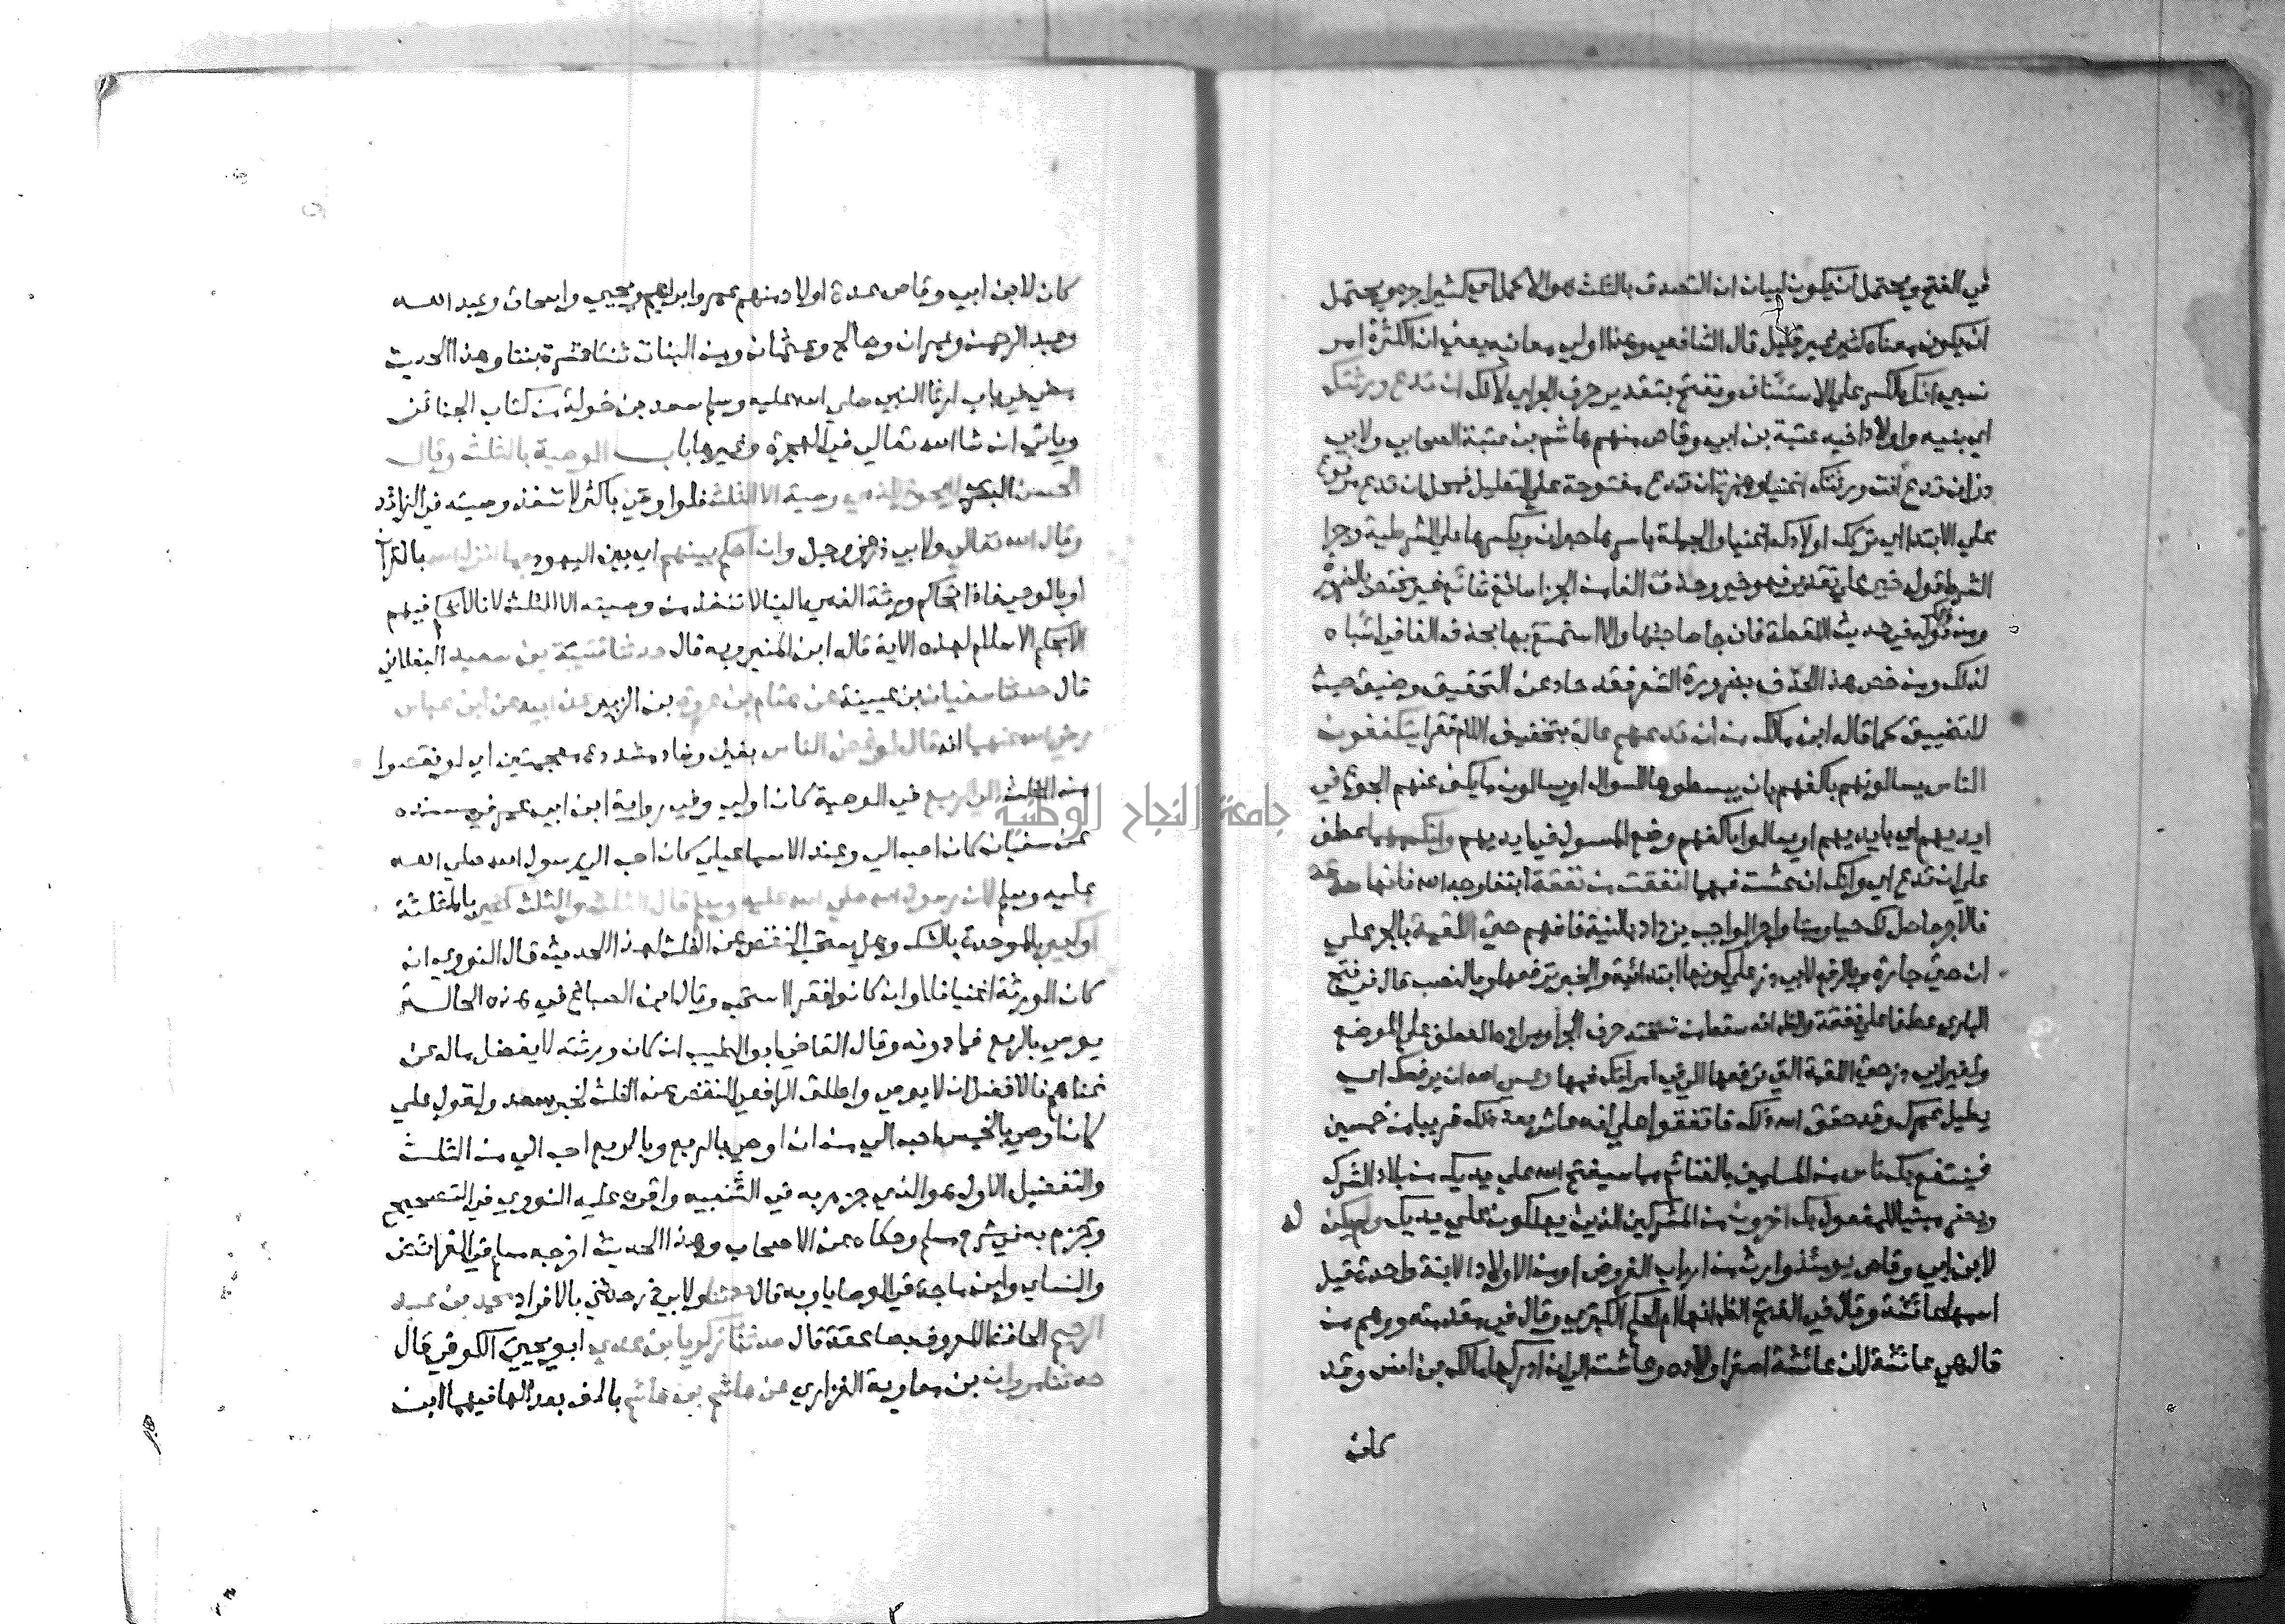 في الفتح ويحتمل ان يكون لبيان ان التصدق بالثلث هو الاكمل اي كثير اجره ويحتمل
ان يكون معناه كثير غير قليل قال الشافعي وهذا اولى معانيه يعني ان الكثرة امر
نسبي انك بالكسر على الاستئناف وتفتح بتقدير حرف الجر اي لانك ان تدع ورثتك
اي بنيه واولاد اخيه عتبة بن ابي وقاص منهم هاشم بن عتبة الصحابي ولابي
ذر ان تدع انت ورثتك اغنيا وهمزة ان تدع مفتوحة على التعليل فمحل ان تدع مرفوع
على الابتدا اي تركك اولادك اغنيا والجملة باسرها خبر ان وبكسرها على الشرطية وجزا
الشرط قوله خير على تقدير فهو خير وحذف الفا من الجزا سائغ شائع غير مختص بالضرورة
ومنه قوله في حديث اللقطة فان جا صاحبها والا استمتع بها بحذف الفا في اشباه
لذلك ومن خص هذا الحذف بضرورة الشعر فقد حاد عن التحقيق وضيق حيث
لا تضييق كما قاله ابن مالك من ان تدعهم عالة بتخفيف اللام فقرا يتكففون
الناس يسالونهم باكفهم بان يبسطوها للسوال او يسالون ما يكف عنهم الجوع في
ايديهم اي بايديهم او يسالوا باكفهم وضع المسول في ايديهم وانك مهما عطف
على ان تدع اي وانك ان عشت فمهما انفقت من نفقة ابتغا وجه الله فانها صدقة
فالاجر حاصل لك حيا وميتا واجر الواجب يزداد بالنية فافهم حتى اللقمة بالجر على
ان حتى جارة وبالرفع لابي ذر على كونها ابتدائية والخبر ترفعها وبالنصب قال في فتح
الباري عطفا على نفقة والظاهر انه سقط من نسخته حرف الجر او مراده العطف على الموضع
ولغير ابي ذر حتى اللقمة التي ترفعها الى في امراتك فيها وعسى الله ان يرفعك اي
يطيل عمرك وقد حقق الله ذلك فاتفقوا على انه عاش بعد ذلك قريبا من خمسين
فينتفع بك ناس من المسلمين بالغنائم مما سيفتح الله على يديك من بلاد الشرك
ويضر مبنيا للمفعول بك اخرون من المشركين الذين يهلكون على يديك ولم يكن له
لابن ابي وقاص يومئذ وارث من ارباب الفروض او من الاولاد الا ابنة واحدة قيل
اسمها عائشة وقال في الفتح الظاهر انها ام الحكم الكبرى وقال في مقدمته ووهم من
قال هي عائشة لان عائشة اصغر اولاده وعاشت الى ان ادركها مالك بن انس وقد
كان
كان لابن ابي وقاص عدة اولاد منهم عمر وابراهيم ويحيى واسحاق وعبد الله
وعبد الرحمن وعمران وصالح وعثمان ومن البنات ثنتا عشرة بنتا وهذا الحديث
مضى في باب رثا النبي صلى الله عليه وسلم سعد بن خولة من كتاب الجنائز
وياتي ان شا الله تعالى في الهجرة وغيرها باب الوصية بالثلث وقال
الحسن البصري لا يجوز للذمي وصية الا الثلث فلو اوصى باكثر لا تنفذ وصيته في الزائد
وقال الله تعالى ولابي ذر عز وجل وان احكم بينهم اي بين اليهود بما انزل الله بالقرآن
او بالوحي فاذا تحاكم ورثة الذمي الينا لا تنفذ من وصيته الا الثلث لانا لا نحكم فيهم
الا بحكم الاسلام لهذه الاية قاله ابن المنير وبه قال حدثنا قتيبة بن سعيد البغلاني
قال حدثنا سفيان بن عيينة عن هشام بن عروة بن الزبير عن ابيه عن ابن عباس
رضي الله عنهما انه قال لو غض الناس بغين وضاد مشددة معجمتين اي لو نقصوا
من الثلث الى الربع في الوصية كان اولى وفي رواية ابن ابي عمر في مسنده
عن سفيان كان احب الي وعند الاسماعيلي كان احب الى رسول الله صلى الله
عليه وسلم لان رسول الله صلى الله عليه وسلم قال الثلث والثلث كثير بالمثلثة
او كبير بالموحدة بالشك وهل يستحب النقص عن الثلث لهذا الحديث قال النووي انه
كان الورثة اغنيا فلا وان كانوا فقرا استحب وقال ابن الصباغ في هذه الحالة
يوصي بالربع فما دونه وقال القاضي ابو الطيب ان كان ورثته لا يفضل ماله عن
غناهم فالافضل ان لا يوصي واطلق الرافعي النقص عن الثلث لخبر سعد ولقول علي
لان اوصي بالخمس احب الي من ان اوصي بالربع وبالربع احب الي من الثلث
والتفضيل الاول هو الذي جزم به في التنبيه واقره عليه النووي في التصحيح
وجزم به في شرح مسلم وحكاه عن الاصحاب وهذا الحديث اخرجه مسلم في الفرائض
والنساي وابن ماجة في الوصايا وبه قال حدثنا ولابي ذر حدثني بالافراد محمد بن عبد
الرحيم الحافظ المعروف بصاعقة قال حدثنا زكريا بن عدي ابو يحيى الكوفي قال
حدثنا مروان بن معاوية الفزاري عن هاشم بن هاشم بالف بعد الها فيهما ابن
جامعة النجاح الوطنية